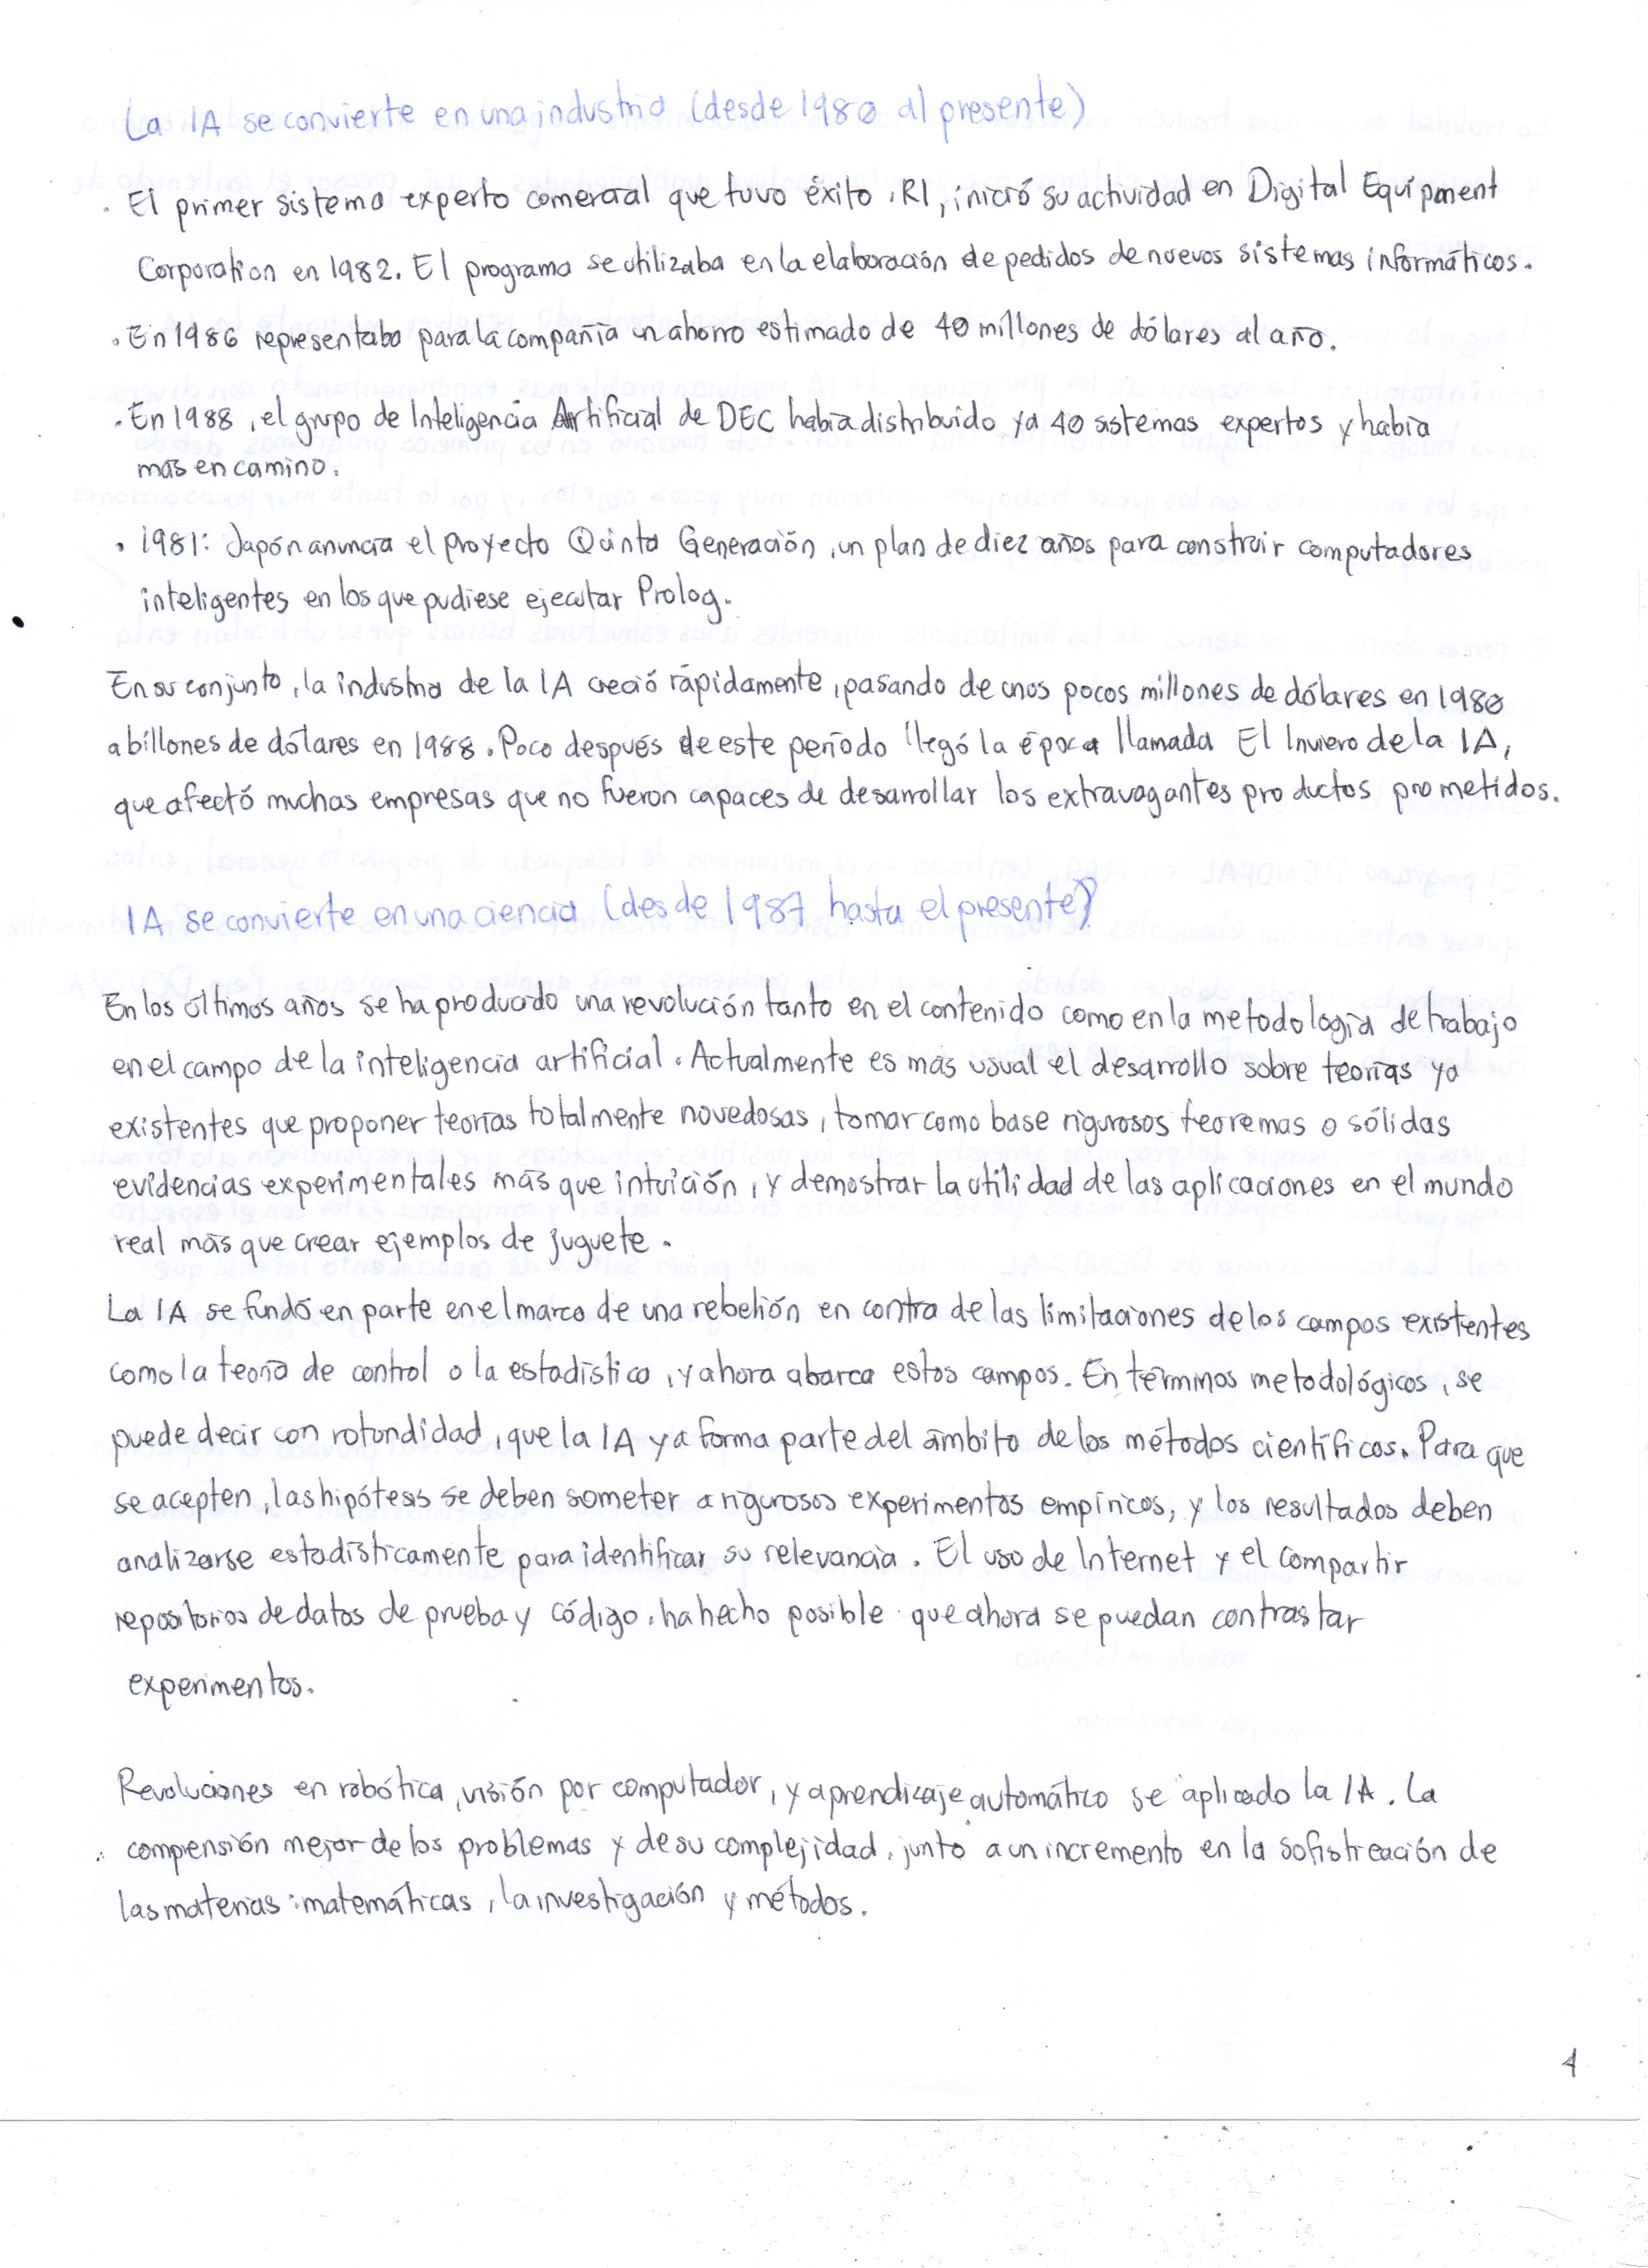 La IA se convierte en una industria (desde 1980 al presente)
· El primer sistema experto comercial que tuvo éxito, R1, inició su actividad en Digital Equipment
Corporation en 1982. El programa se utilizaba en la elaboración de pedidos de nuevos sistemas informáticos.
· En 1986 representaba para la compañía un ahorro estimado de 40 millones de dólares al año.
· En 1988, el grupo de Inteligencia Artificial de DEC había distribuido ya 40 sistemas expertos y había
más en camino.
· 1981: Japón anuncia el proyecto Quinta Generación, un plan de diez años para construir computadores
inteligentes en los que pudiese ejecutar Prolog.
En su conjunto, la industria de la IA creció rápidamente, pasando de unos pocos millones de dólares en 1980
a billones de dólares en 1988. Poco después de este período llegó la época llamada El Inviero de la IA,
que afectó muchas empresas que no fueron capaces de desarrollar los extravagantes productos prometidos.
IA se convierte en una ciencia (desde 1987 hasta el presente)
En los últimos años se ha producido una revolución tanto en el contenido como en la metodología de trabajo
en el campo de la inteligencia artificial. Actualmente es más usual el desarrollo sobre teorías ya
existentes que proponer teorías totalmente novedosas, tomar como base rigurosos teoremas o sólidas
evidencias experimentales más que intuición, y demostrar la utilidad de las aplicaciones en el mundo
real más que crear ejemplos de juguete.
La IA se fundó en parte en el marco de una rebelión en contra de las limitaciones de los campos existentes
como la teoría de control o la estadística, y ahora abarca estos campos. En términos metodológicos, se
puede decir con rotundidad, que la IA ya forma parte del ámbito de los métodos científicos. Para que
se acepten, las hipótesis se deben someter a rigurosos experimentos empíricos, y los resultados deben
analizarse estadísticamente para identificar su relevancia. El uso de Internet y el compartir
repositorios de datos de prueba y código, ha hecho posible que ahora se puedan contrastar
experimentos.
Revoluciones en robótica, visión por computador, y aprendizaje automático se aplicado la IA. La
comprensión mejor de los problemas y de su complejidad, junto a un incremento en la sofistreación de
las materias: matemáticas, la investigación y métodos.
4